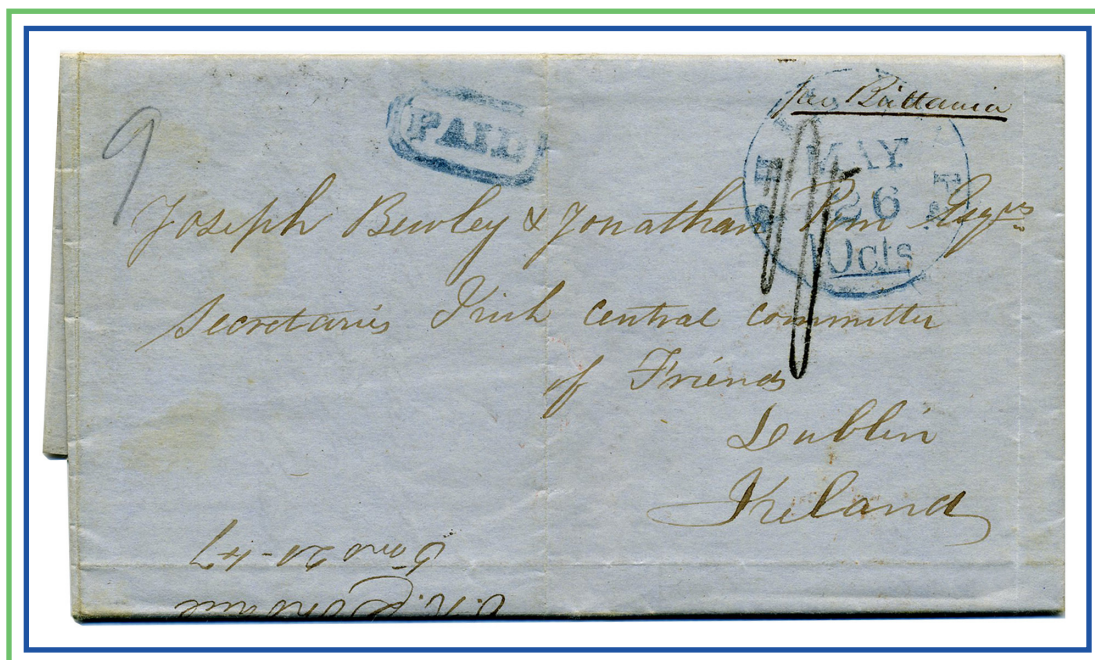 per Brittania
9
PAID
PHILA PA.
MAY
26
10cts
Joseph Bewley & Jonathan Pim Esqrs
Secretaries Irish Central Committee
of Friends
Dublin
Ireland
5 mo 20-47